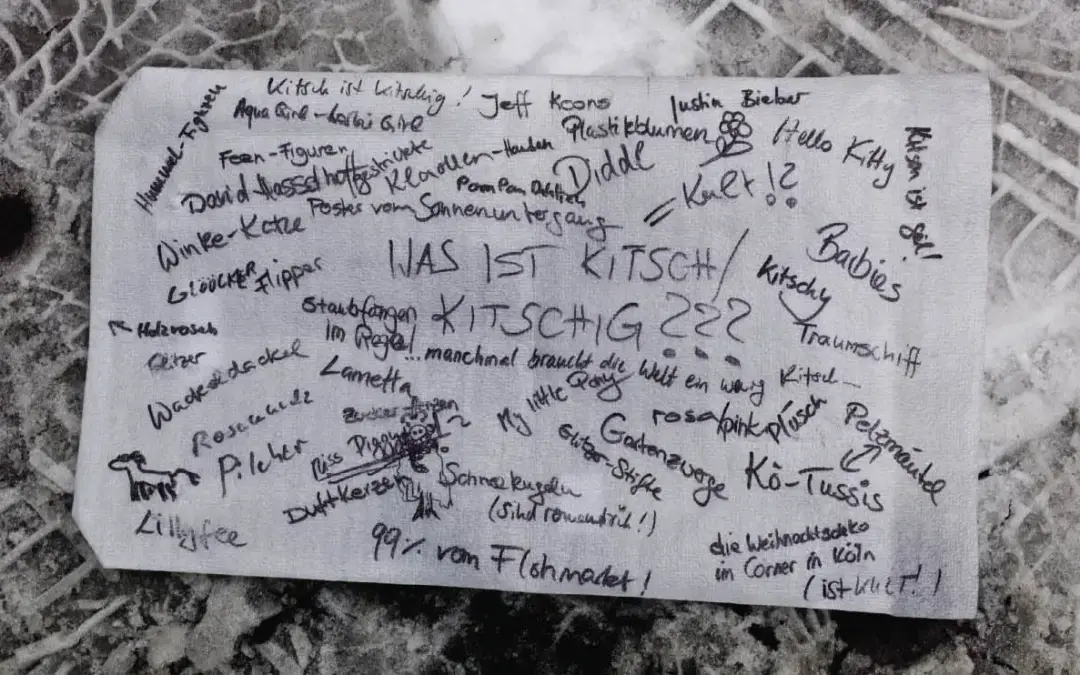 Kitsch ist kitschig!
Jeff Koons
Justin Bieber
Hummel-Figuren
Aqua Girl - Barbie Girl
Plastikblumen
Hello Kitty
Kitsch ist
Feen-Figuren
gestrickte Klorollen-Hauben
Diddl
David Hasselhoff
PomPom
= Kult!?
Poster vom Sonnenuntergang
Winke-Katze
WAS IST KITSCH/
KITSCHIG ???
Barbies
GLÖÖCKER
Flipper
Kitschy
Traumschiff
Staubfänger
im Regal
Glitzer
...manchmal braucht die Welt ein wenig Kitsch...
Wackeldackel
Lametta
My little Pony
rosa/pink plüsch
Pelzmäntel
Rosamunde
Pilcher
Miss Piggy
Glitzer-Stifte
Gartenzwerge
Kö-Tussis
Duftkerzen
Schneekugeln
(sind romantisch!)
Lillyfee
99% vom Flohmarkt!
die Weihnachtsdeko
im Corner in Köln
(ist Kult!!)